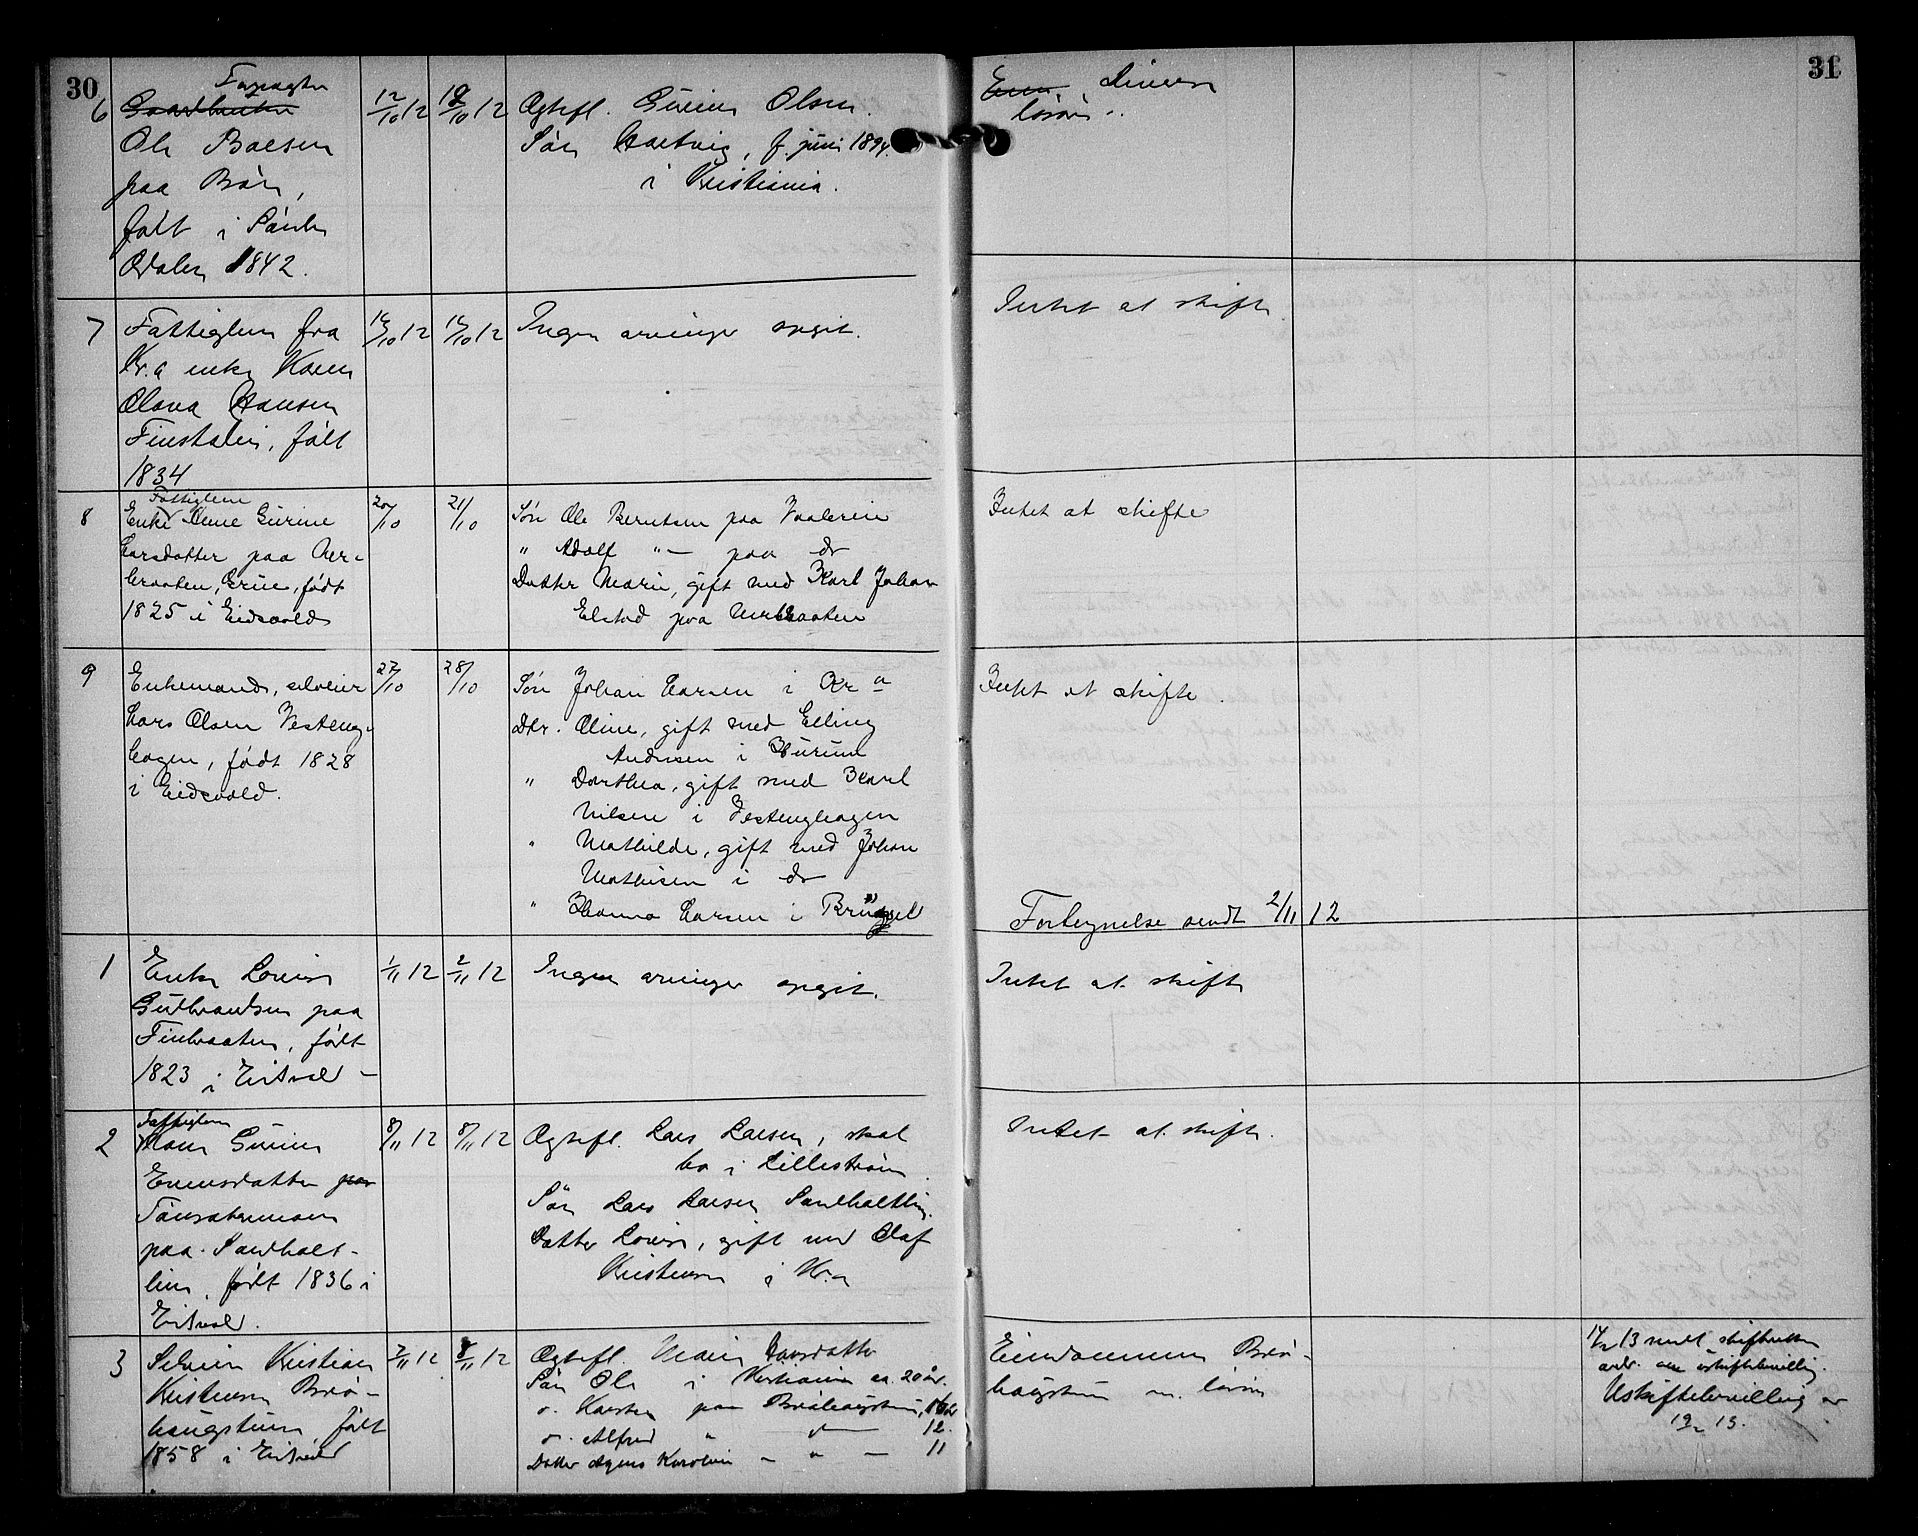 30
6
Forpagter
Gaardbruker
Ole Boesen
paa Bön,
født i Søndre
Odalen 1842.
12/10 12
12/10 12
Egtefl. Gurine Olsen.
Søn Hartvig, f. juni 1894.
i Kristiania.
31
Diverse
løsøre.
7
Fattiglem fra
Kr.a enke Karen
Olava Hansen
Finstalin, født
1834
16/10 12
16/10 12
Ingen arvinger opgit.
Intet at skifte
8
Fattiglem
Enke Lene Gurine
Larsdatter paa
braaten, Grue, født
1825 i Eidsvold
20/10
21/10
Søn Ole Berntsen paa Vaalerin
" Adolf "— paa do
Datter Marie, gift med Karl Johan
Elstad paa
Intet at skifte
9
Enkemand, selveier
Lars Olsen Vesteng-
hagen, født 1828
i Eidsvold.
27/10
28/10
Søn Johan Larsen i Kr a
Dtr. Oline, gift med Elling
Andersen i Hurum
" Dorthea, gift med Karl
Nilsen i Vestenghagen
" Mathilde, gift med Johan
Mathisen i do
" Hanna Larsen i
Intet at skifte.
Fortegnelse sendt 2/11 12
1
Enke Lovise
Gulbrandsen paa
Finbraaten, født
1823 i Eidsvold –
1/11 12
2/11 12
Ingen arvinger opgit.
Intet at skifte
2
Fattiglem
Karen Gurine
Evensdatter paa
paa Sandholt-
lien, født 1836 i
Eidsvold.
8/11 12
8/11 12
Egtefl. Lars Larsen, skal
bo i Lillestrøm
Søn Lars Larsen Sandholtlien.
Datter Lovise, gift med Olaf
Kristensen i Kr.a
Intet at skifte.
3
Selveier Kristian
Kristensen Brø-
haugstuen, født
1858 i Eidsvold
7/11 12
8/11 12
Egtefl. Maren Larsdatter
Søn Ole i Kristiania ca. 20 år.
d. Karsten paa Brøhaugstuen, 16 år
d. Alfred " — 12.
Datter Agnes Karoline – " – 11
Eiendommen Brø-
haugstuen m. løsøre
14/2 13 sendt skifteretten
ans. om uskiftebevilling.
Uskiftebevilling av
19/2 13.